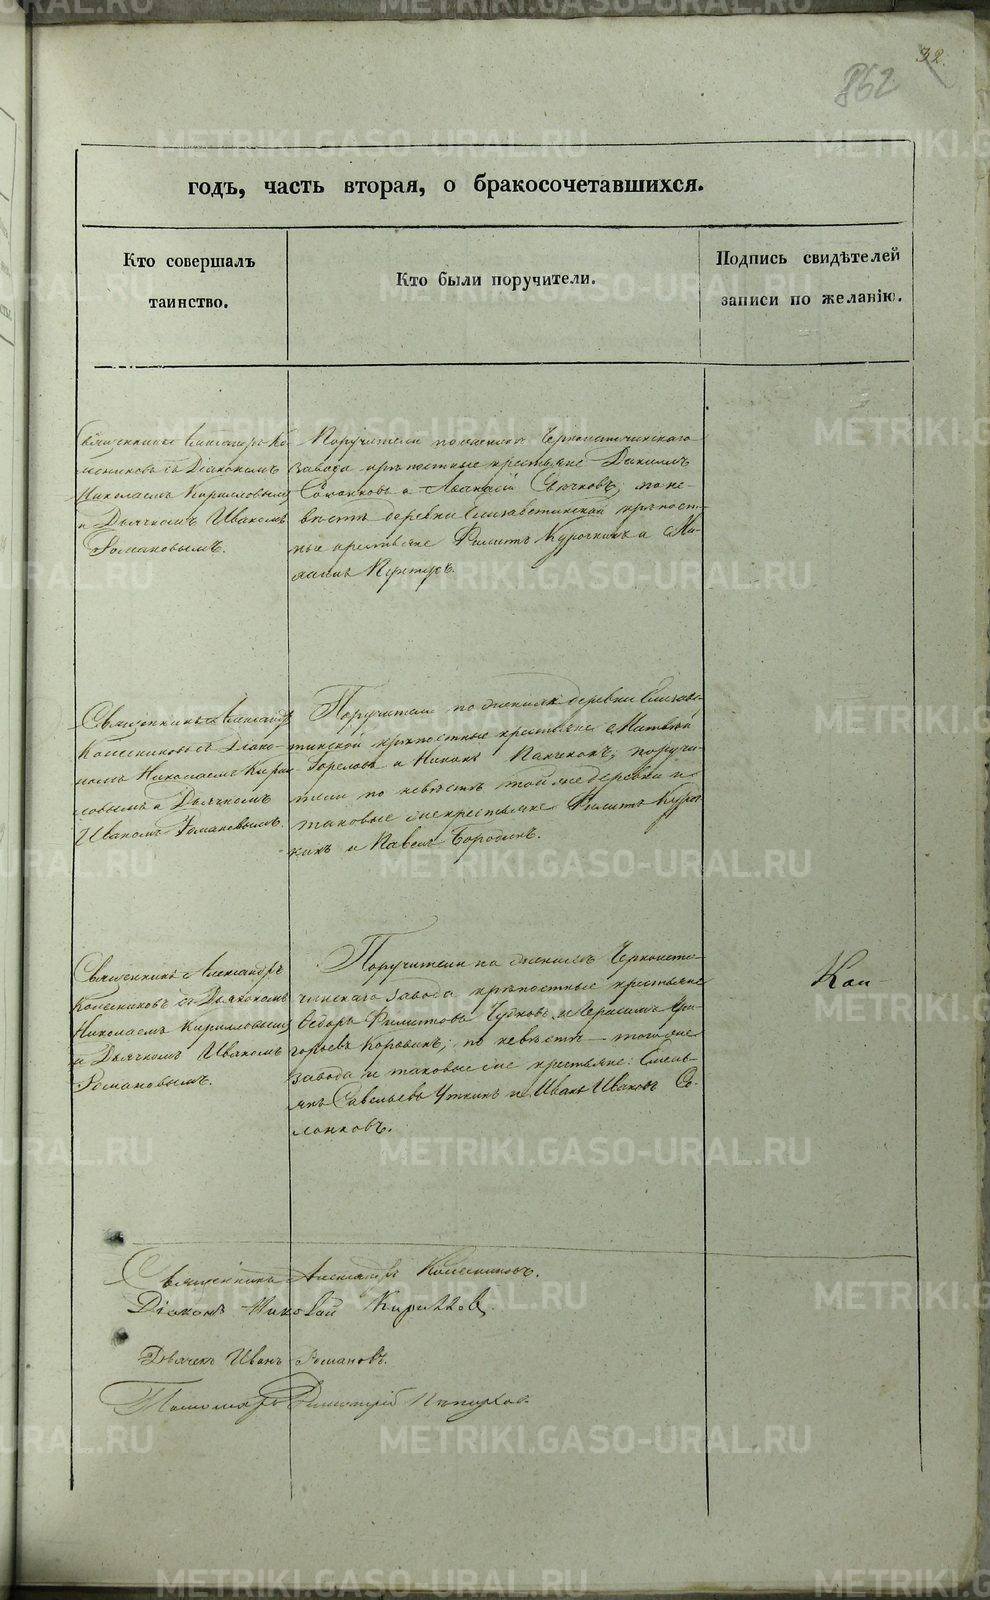 32.
862
годъ, часть вторая, о бракосочетавшихся.
Кто совершалъ
таинство.
Кто были поручители.
Подпись свидѣтелей
записи по желанію.
Священникъ Александръ Ко-
лесниковъ съ Діакономъ
Николаемъ Кирилловымъ
и Дьячкомъ Иваномъ
Романовымъ.
Поручители по женихѣ Черноисточинскаго
завода крѣпостные крестьяне Даниилъ
и Аѳанасій по не-
вѣстѣ деревни Елизаветинской крѣпост-
ные крестьяне Филиппъ Курочкинъ и Ми-
хаилъ
Священникъ Александръ
Колесниковъ съ Діако-
номъ Николаемъ Кирил-
ловымъ и Дьячкомъ
Иваномъ Романовымъ.
Поручители по женихѣ деревни Елизаве-
тинской крѣпостные крестьяне Матвѣй
Гореловъ и Никонъ поручи-
тели по невѣстѣ той же деревни и
таковые же крестьяне Филиппъ Куроч-
кинъ и Павелъ Бородинъ.
Священникъ Александръ
Колесниковъ съ Діакономъ
Николаемъ Кирилловымъ
и Дьячкомъ Иваномъ
Романовымъ.
Поручители по женихѣ Черноисто-
чинскаго завода крѣпостные крестьяне
Ѳедоръ Филиповъ и Герасимъ Гри-
горьевъ Коровинъ; по невѣстѣ – того же
завода и таковые же крестьяне: Емель-
янъ Савельевъ Уткинъ и Иванъ Ивановъ Со-
лонковъ.
Кон-
Священникъ Александръ Колесниковъ.
Діаконъ Николай Кирилловъ.
Дьячекъ Иванъ Романовъ.
Пономарь
METRIKI.GASO-URAL.RU